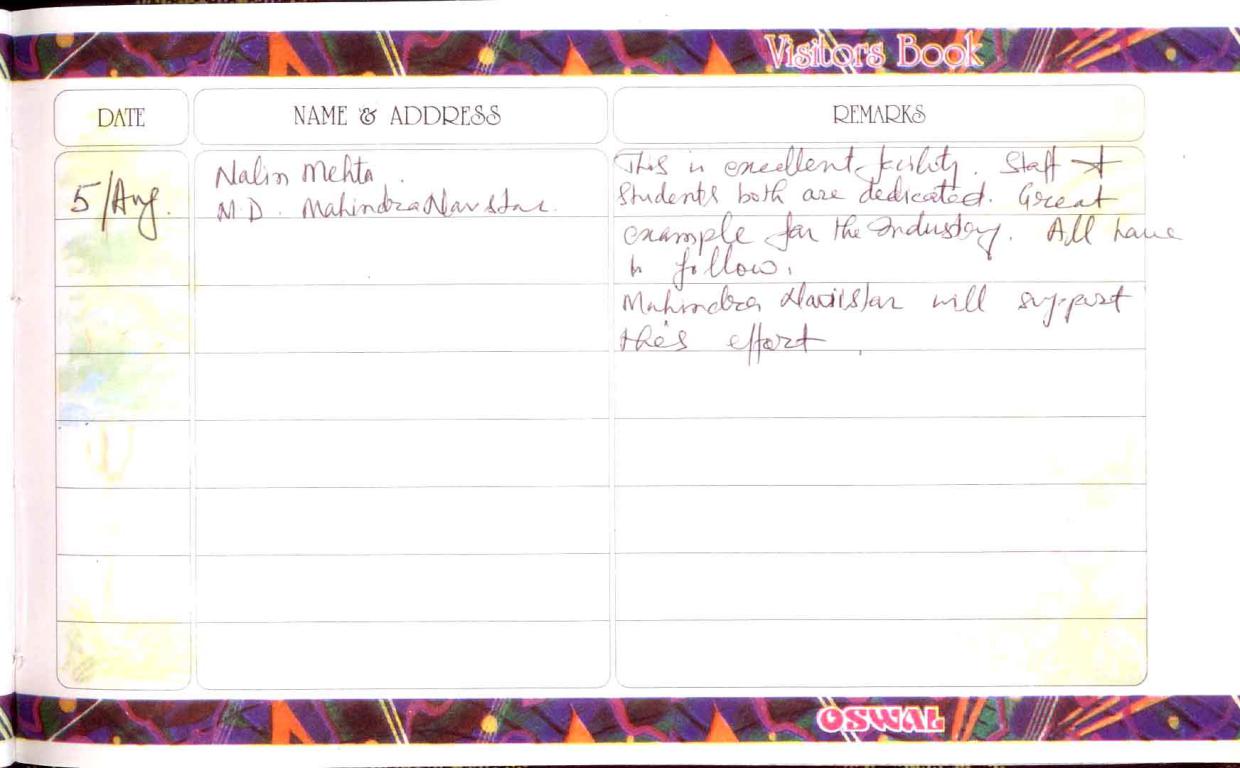 Visitors Book
DATE NAME & ADDRESS REMARKS
5/Aug.
Nalin Mehta.
M.D. Mahindra Navistar.
This is excellent facility. Staff &
Students both are dedicated. Great
example for the Industry. All have
to follow.
Mahindra Navistar will support
this effort.
OSWAL